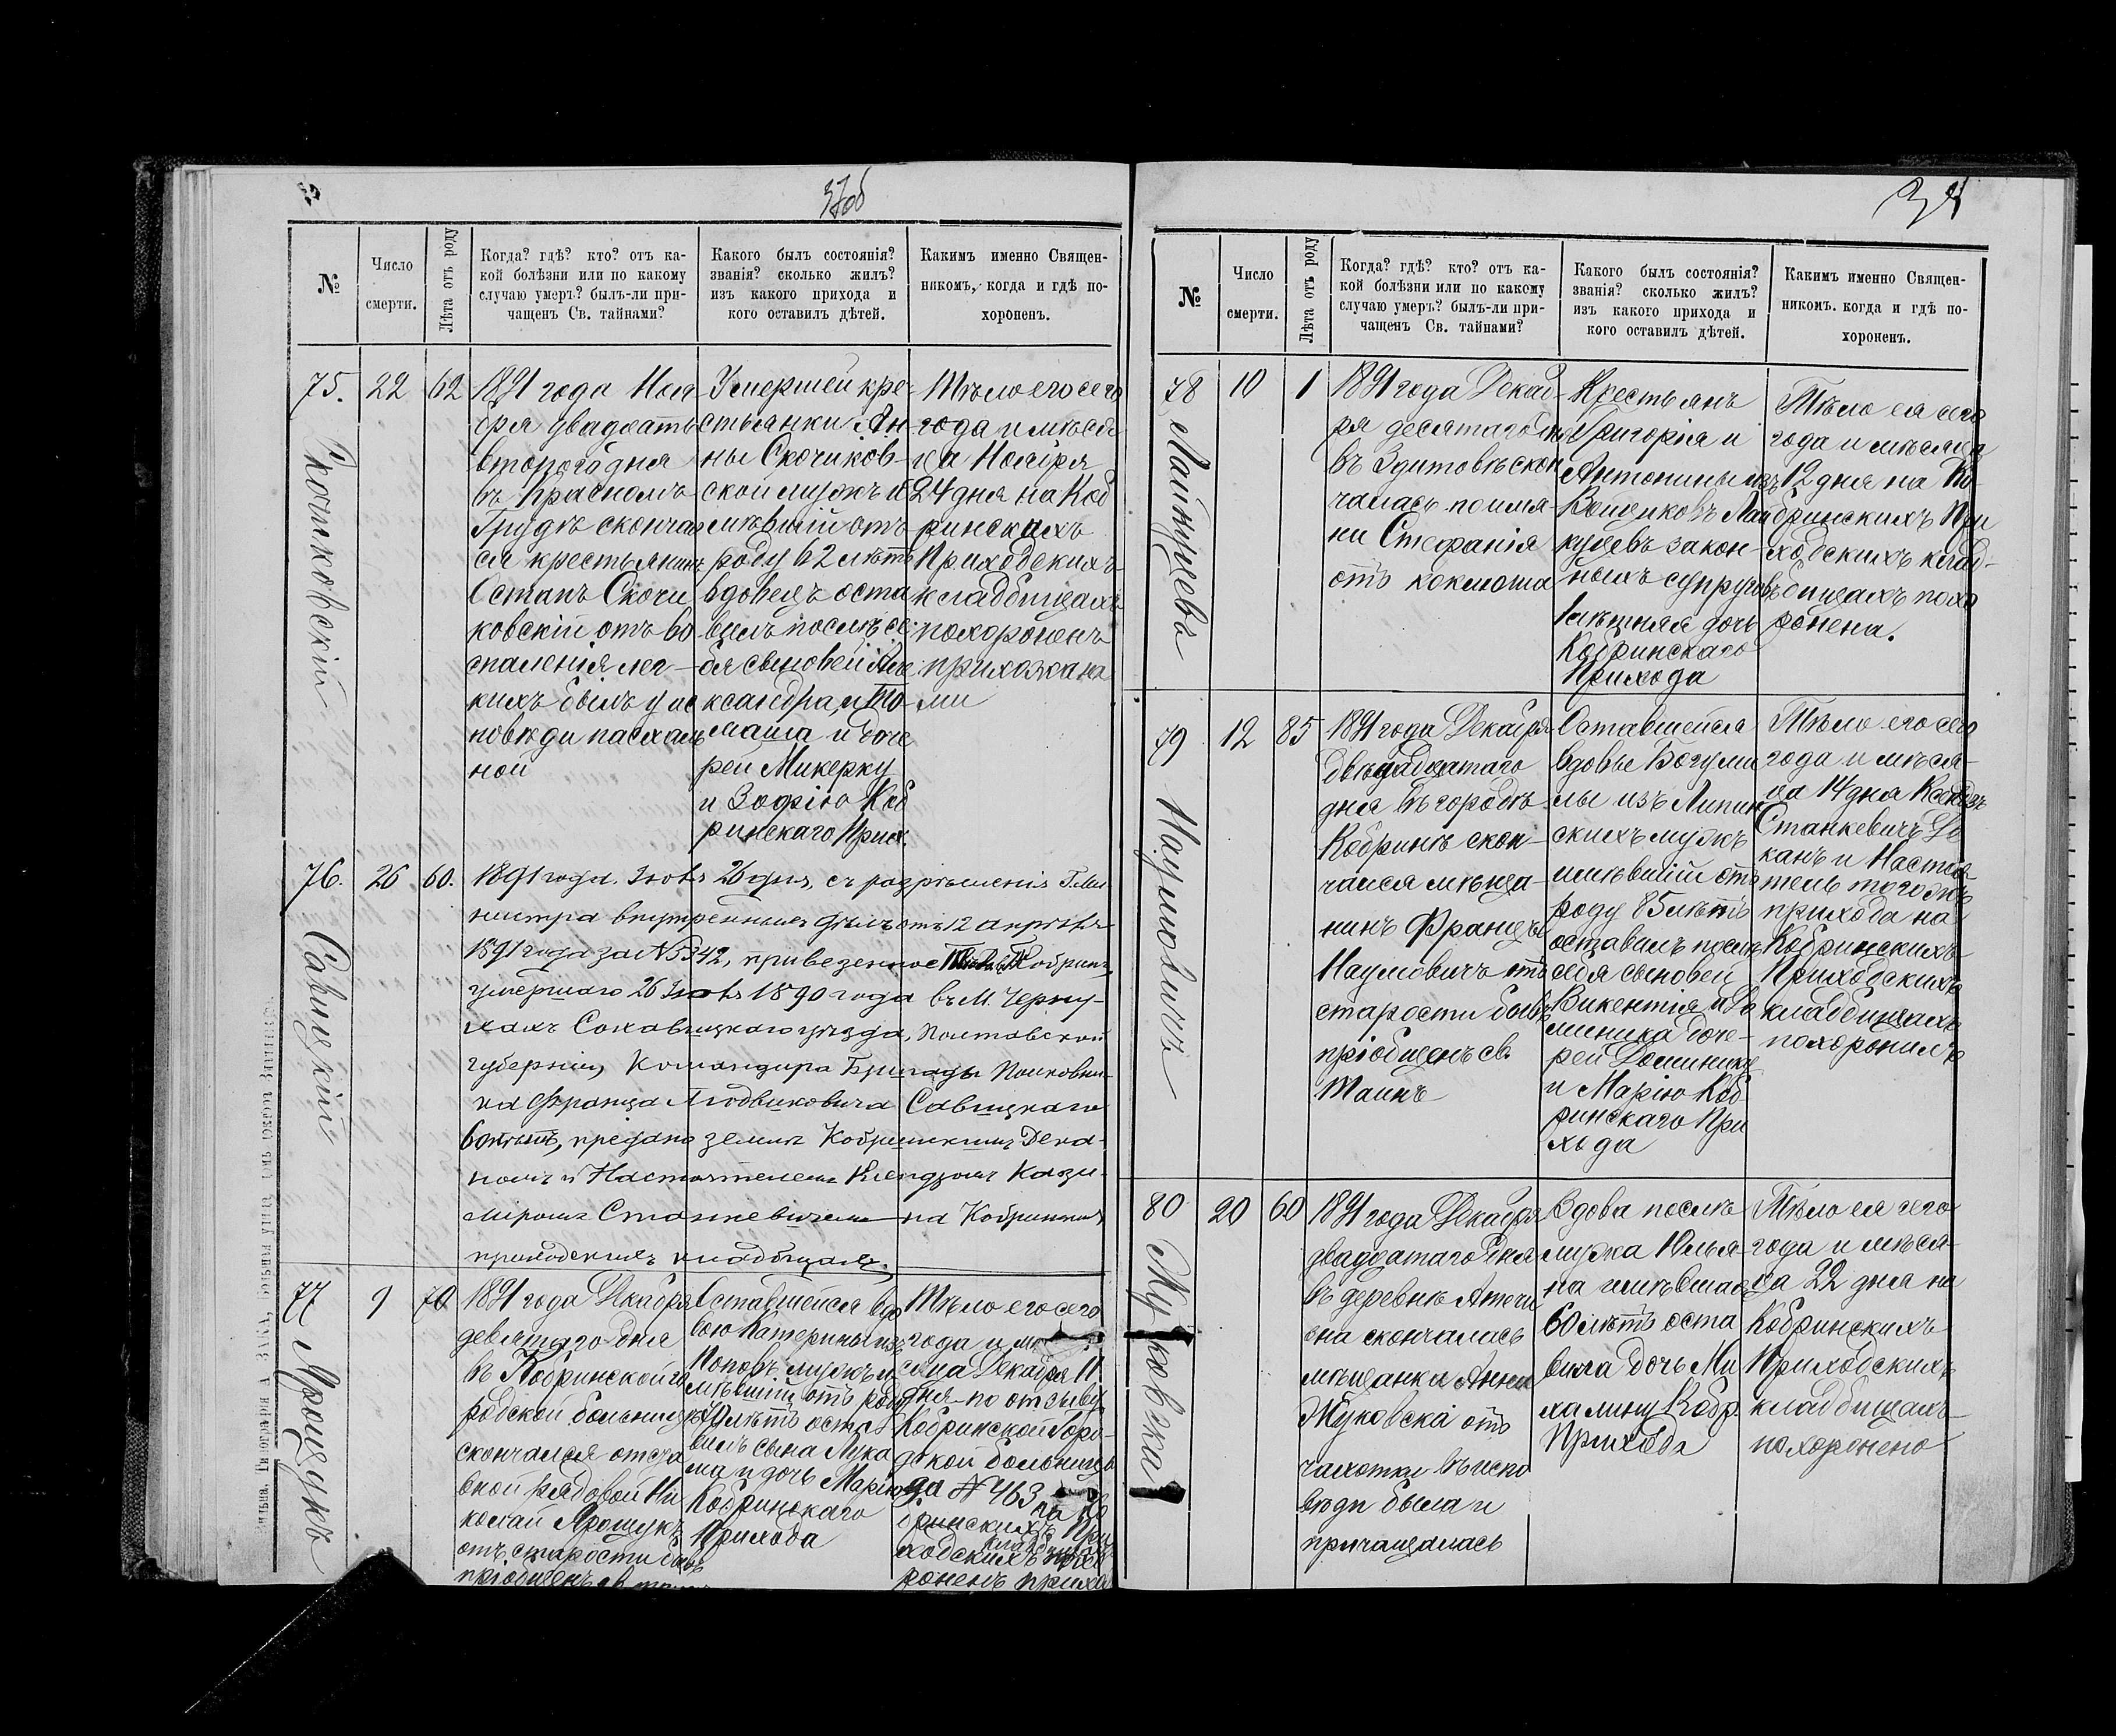 37об
№
Число
смерти.
Лѣта отъ роду
Когда? гдѣ? кто? отъ ка-
кой болѣзни или по какому
случаю умеръ? былъ-ли при-
чащенъ Св. тайнами?
Какого былъ состоянія?
званія? сколько жилъ?
изъ какого прихода и
кого оставилъ дѣтей.
Какимъ именно Священ-
никомъ, когда и гдѣ по-
хороненъ.
75.
Скочиковскій
22
62
1891 года Ноя
бря двадцать
второго дня
въ Красномъ
Грудкѣ сконча
ся крестьянинъ
Остапъ Скочи
ковскій отъ во
спаленія лег-
кихъ былъ у ис
повѣди пасхаль
ной
Умершей кре-
стьянки Ан-
ны Скочиков-
ской мужъ и
мѣвшій отъ
роду 62 лѣтъ
вдовецъ оста
вилъ послѣ се-
бя сыновей Але
ксандра, и То-
маша и доче
рей Микерку
и Зофію Коб
ринскаго Прих.
Тѣло его сего
года и мѣся
ца Ноября
24 дня на Коб
ринскихъ
Приходскихъ
кладбищахъ
похороненъ
прихожана
ми
76.
Савицкій
26
60.
1891 года. Іюля 26 дня, съ разрѣшенія Г. Ми
нистра внутреннихъ дѣлъ отъ 12 апрѣля
1891 года за № 5342, привезенное Кобринъ,
умершаго 26 Іюля 1890 года въ М. Черну-
хахъ уѣзда, Полтавской
губерніи, Командира Бригады Полковни-
ка Франца Людвиковича Савицкаго
60 лѣтъ, предано землѣ Кобринскимъ Дека-
номъ и Настоятелемъ Ксендзомъ Кази-
міромъ Станкевичемъ на Кобринскихъ
приходскихъ кладбищахъ.
77
Ярощукъ
9
70
1891 года Декабря
девятаго дня
въ Кобринской го
родской больницѣ
скончался отста
вной рядовой Ни
колай Ярощукъ
отъ старости былъ
пріобщенъ св.
Оставшейся вдо
вою Катерины изъ
Поповъ мужъ и
мѣвшій отъ роду
70 лѣтъ оста
вилъ сына Лука
ша и дочь Марію
Кобринскаго
Прихода
Тѣло его сего
года и мѣ
сяца Декабря 11
дня по отзыву
Кобринской Горо-
дской больницы
за № 463 на Ко
бринскихъ При
ходскихъ кладбищахъ похо
роненъ прихо
№
Число
смерти.
Лѣта отъ роду
Когда? гдѣ? кто? отъ ка-
кой болѣзни или по какому
случаю умеръ? былъ-ли при-
чащенъ Св. тайнами?
Какого былъ состоянія?
званія? сколько жилъ?
изъ какого прихода и
кого оставилъ дѣтей.
Какимъ именно Священ-
никомъ. когда и гдѣ по-
хороненъ.
78
10
1
1891 года Декаб-
ря десятаго дня
въ Здитовѣ скон
чалась по имя-
ни Стефанія
отъ коклюша
Крестьянъ
Григорія и
Антонины изъ
куцевъ закон-
ныхъ супруговъ
1 лѣтняя дочь
Кобринскаго
Прихода
Тѣло ея сего
года и мѣсяца
12 дня на Ко-
бринскихъ При
ходскихъ клад-
бищахъ похо
ронена.
79
Наумовичъ
12
85
1891 года Декабря
двѣнадцатаго
дня въ городѣ
Кобринѣ скон-
чался мѣща-
нинъ Францъ
Наумовичъ отъ
старости былъ
пріобщенъ св.
Таинъ
Оставшейся
вдовы Богуми
лы изъ Липин
скихъ мужъ
имѣвшій отъ
роду 85 лѣтъ
оставилъ послѣ
себя сыновей
Викентія и До
миника доче-
рей Доминику
и Марію Коб
ринскаго При
хода
Тѣло его сего
года и мѣся-
ца 14 дня Ксендзъ
Станкевичъ Де
канъ и Настоя-
тель того же
прихода на
Кобринскихъ
Приходскихъ
кладбищахъ
похоронилъ
80
Жуковская
20
60
1891 года Декабря
двадцатаго дня
въ деревнѣ
скончалась
мѣщанка Анна
Жуковска отъ
чахотки въ испо
вѣди была и
причащалась
Вдова послѣ
мужа Юлья-
на имѣвшая
60 лѣтъ оста
вила дочь Ми
халину Кобр.
Прихода
Тѣло ея сего
года и мѣся-
ца 22 дня на
Кобринскихъ
Приходскихъ
кладбищахъ
похоронено